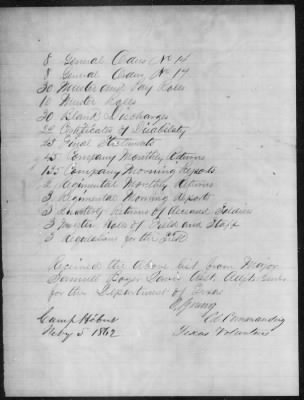 8 General Orders No 14
8 General Orders No 17
30 Muster and Pay Roles
10 Muster Rolls
30 Blank Discharges
20 Certificates of Disability
25 Final Statements
45 Company Monthly Returns
135 Company Morning Reports
2 Regimental Monthly Returns
3 Regimental Morning Reports
3 Quarterly Returns of Deceased Soldiers
3 Muster Roles of Field and Staff
3 Regulations for the
Recived the above list from Major
Samuel Boyer Davis Asst Adjt Genl
for the Department of Texas
Col Commanding
Texas Volunteers
Camp Hebert
5 1862